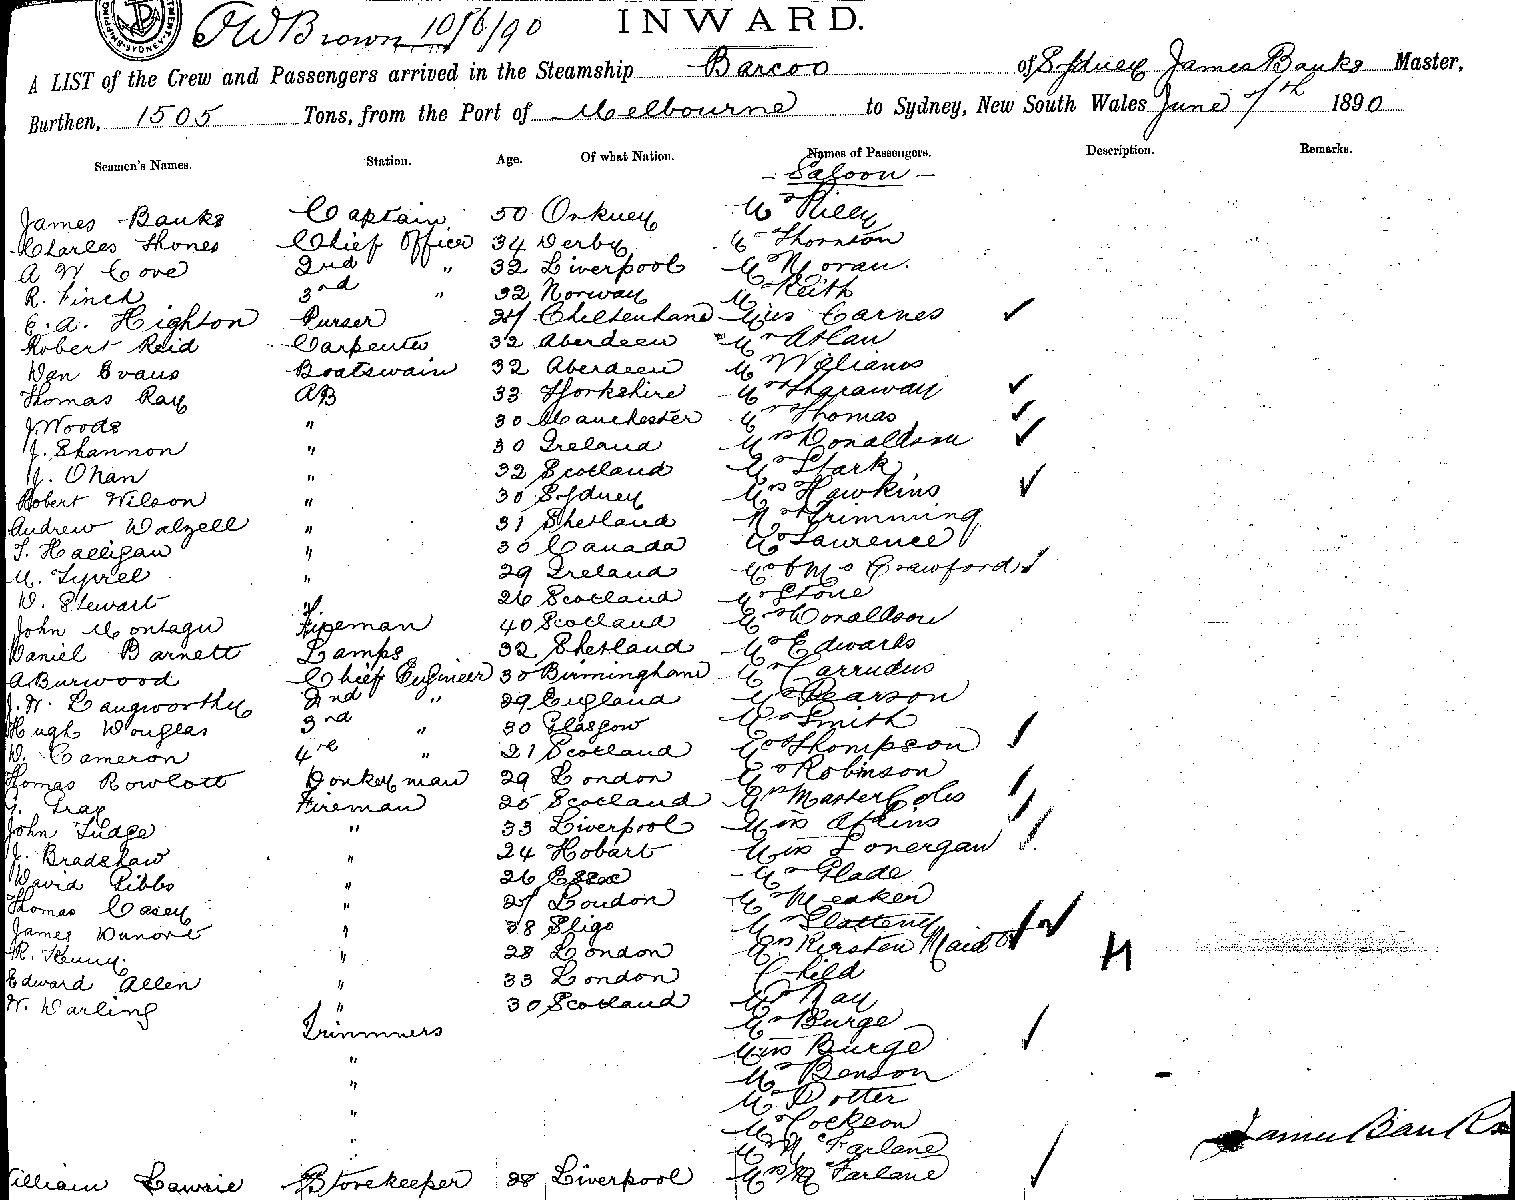 INWARD.
JWBrown 10/6/90
A LIST of the Crew and Passengers arrived in the Steamship Barcoo of Sydney James Banks Master,
Burthen, 1505 Tons, from the Port of Melbourne to Sydney, New South Wales June 7th 1890
Seamen's Names. Station. Age. Of what Nation. Names of Passengers. Description. Remarks.
- Saloon -
James Banks Captain 50 Orkney Mr Riley
Charles Thones Chief Officer 34 Derby Mr Thornton
A W Cove 2nd " 32 Liverpool Mr Moran.
R. Finch 3rd " 32 Norway Mr Keith
E. A. Highton Purser 27 Cheltenham Miss Carnes
Robert Reid Carpenter 32 Aberdeen Mr Allan
Dan Evans Boatswain 32 Aberdeen Mr Williams
Thomas Ray AB 33 Yorkshire Mr Tharaway
J. Woods " 30 Manchester Mr Thomas
J. Shannon " 30 Ireland Mrs Donaldson
J. Ohan " 32 Scotland Mr Stark
Robert Wilson " 30 Sydney Mrs Hawkins
Andrew Dalzell " 31 Shetland Mr Trimming
T. Halligan " 30 Canada Mr Laurence
M. Tyrrel " 29 Ireland Mr & Mrs Crawford
D. Stewart " 26 Scotland Mr Stone
John Montagu Fireman 40 Scotland Mr Donaldson
Daniel Barnett Lamps 32 Shetland Mr Edwards
A Burwood Chief Engineer 30 Birmingham Mr Carrudus
J. W. Langworthy 2nd " 29 England Mr Pearson
Hugh Douglas 3rd " 30 Glasgow Mr Smith
D. Cameron 4th " 21 Scotland Mrs Thompson
Thomas Rowlott Donkeyman 29 London Mr Robinson
G. Gray Fireman 25 Scotland Mrs Master Coles
John Tudge " 33 Liverpool Miss Atkins
J. Bradshaw " 24 Hobart Miss Lonergan
David Gibbs " 26 Essex Mr Glade
Thomas Casey " 27 London Mr Meaken
James " 38 Sligo Mr Slattery
R. Kenny. " 28 London Mrs Kirsten Maid or
Edward Allen " 33 London Child
W. Darling " 30 Scotland Mr Ray
Trimmers Mr Burge
" Miss Burge
" Mr Benson
" Mr Potter
" Mr Cockson
Mr McFarlane
William Lawrie Storekeeper 28 Liverpool Mrs McFarlane
H
James Banks